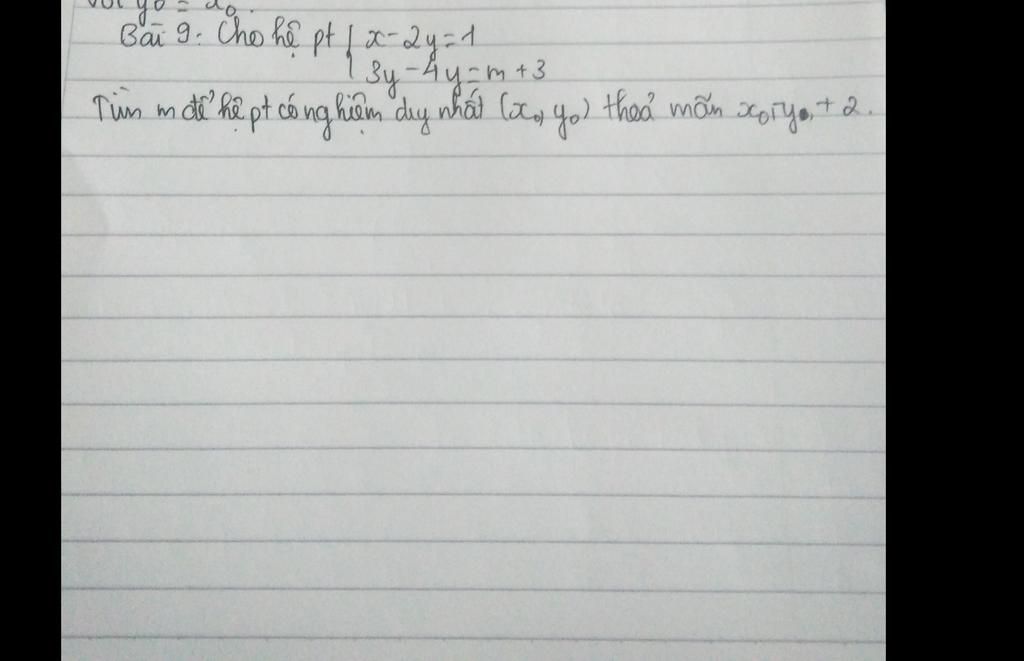 với y₀ = x₀.
Bài 9: Cho hệ pt { x - 2y = 1
3y - 4y = m + 3
Tìm m để hệ pt có nghiệm duy nhất (x₀, y₀) thoả mãn x₀, y₀, + 2.